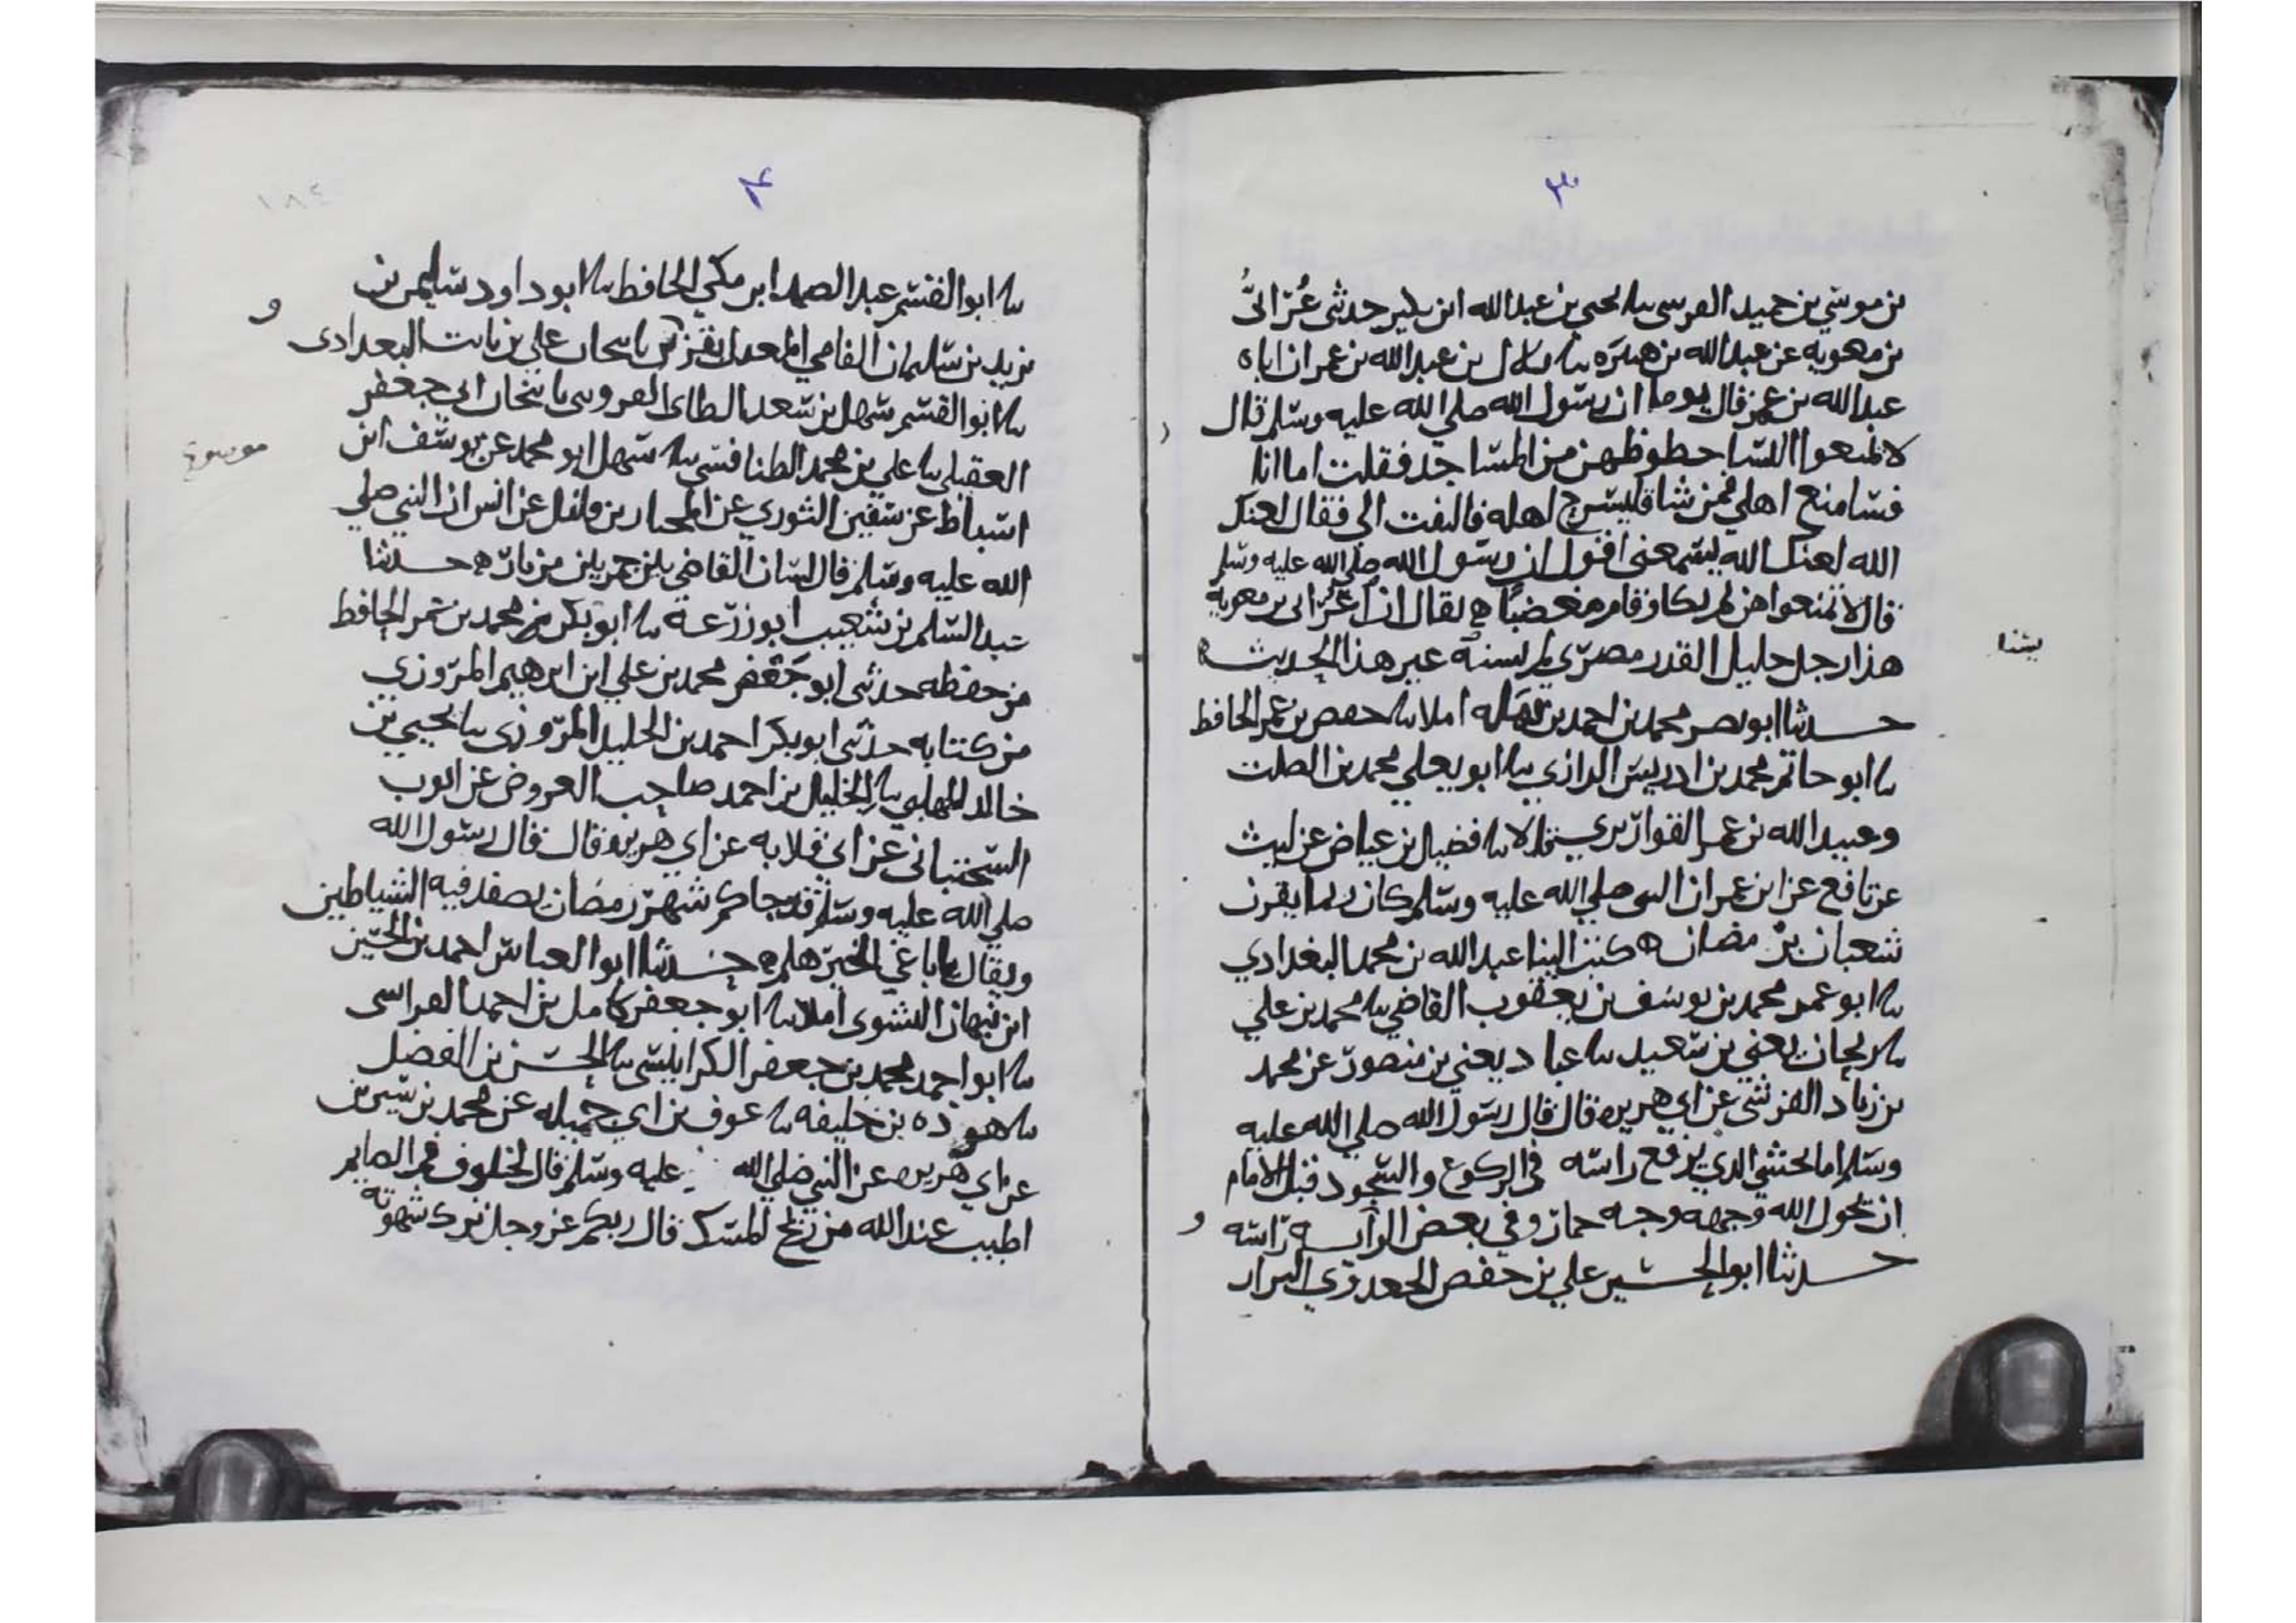 ٣
بن موسي بن حميد الفرسي نا يحيي بن عبدالله ابن بكير حدثني عُرّابيُّ
بن معوية عن عبدالله بن هبيرَه نا بلال بن عبدالله بن عمر ان اباه
عبدالله بن عمر قال يوما ان رسول الله صلي الله عليه وسلم قال
لا تمنعوا النسا حظوظهن من المساجد فقلت اما انا
فسامنع اهلي فمن شا فليسرج اهله فالتفت الي فقال لعنك
الله لعنك الله ليسمعني اقول ان رسول الله صلي الله عليه وسلم
قال لا تمنعوا هن ثم بكا وقام مغضبًا ه يقال ان عُرّابي بن معوية
هذا رجل جليل القدر مصري لم يسند غير هذا الحديث ه
يسندا
حدثنا ابو نصر محمد بن احمد بن املا نا حفص بن عمر الحافظ
نا ابو حاتم محمد بن ادريس الرازي نا ابو يعلي محمد بن الصلت
وعبيد الله بن عمر القواريري قالا نا فضيل بن عياض عن ليث
عن نافع عن ابن عمر ان النبي صلي الله عليه وسلم كان ربما يقرن
شعبان برمضان ه كتب الينا عبدالله بن محمد البغدادي
نا ابو عمر محمد بن يوسف بن يعقوب القاضي نا محمد بن علي
نا ريحان يعني بن سعيد نا عباد يعني بن منصور عن محمد
بن زياد القرشي عن ابي هريره قال قال رسول الله صلي الله عليه
وسلم اما يخشي الذي يرفع راسه في الركوع والسجود قبل الامام
ان يحول الله وجهه وجه حمار وفي بعض الراسه راسه
حدثنا ابو الحسين علي بن حفص البزار
٤
١٨٤
نا ابوا القسم عبد الصمد ابن مكي الحافظ نا ابو داود سليمن بن
يزيد بن سليمان الفامي المعدل بقزوين نا علي بن ثابت البغدادي
نا ابوا القسم سهل بن سعد الطاي نا ابي جعفر
العقيلي نا علي بن محمد الطنافسي نا سهل ابو محمد عن يوسف ابن
موضوع
اسباط عن سفين الثوري عن المختار بن فلفل عن انس ان النبي صلي
الله عليه وسلم قال لسان القاضي بين جمرتين من نار ه حدثنا
عبد السلم بن شعيب ابو زرعة نا ابو بكر محمد بن عمر الحافظ
من حفظه حدثني ابو جَعْفر محمد بن علي ابن ابرهيم المروزي
من كتابه حدثني ابو بكر احمد بن الخليل المروزي نا يحيي بن
خالد المهلبي نا الخليل بن احمد صاحب العروض عن ايوب
السختياني عن ابي قلابه عن ابي هريره قال قال رسول الله
صلي الله عليه وسلم قد جاكم شهر رمضان يصفد فيه الشياطين
ويقال يا باغي الخير هلم ه حدثنا ابو العباس احمد بن الحسين
ابن نبهان النشوي املا نا ابو جعفر كامل بن احمد
نا ابو احمد محمد بن جعفر الكرابيسي نا الحسن بن الفضل
نا هوذه بن خليفه نا عوف بن ابي جميله عن محمد بن سيرين
عن ابي هريره عن النبي صلي الله عليه وسلم قال لخلوف فم الصايم
اطيب عند الله من ريح المسك قال ربكم عز وجل ترك شهوته